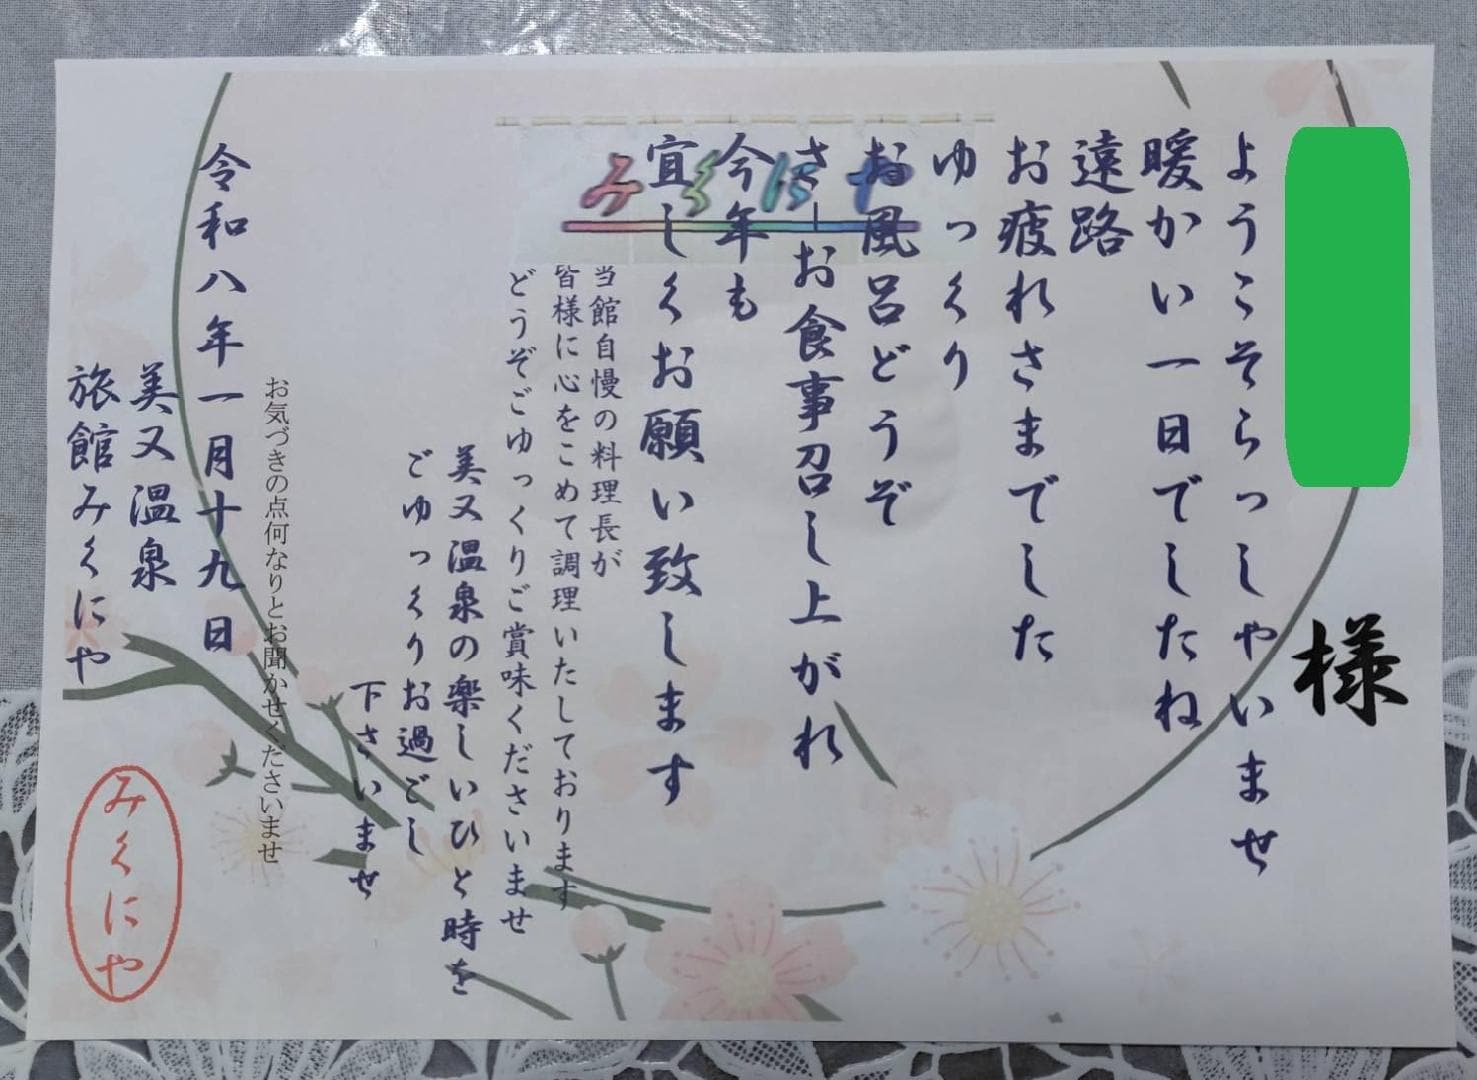 様
ようこそらっしゃいませ
暖かい一日でしたね
遠路
お疲れさまでした
ゆっくり
お風呂どうぞ
さーお食事召し上がれ
今年も
宜しくお願い致します
みくにや
当館自慢の料理長が
皆様に心をこめて調理いたしております
どうぞごゆっくりご賞味くださいませ
美又温泉の楽しいひと時を
ごゆっくりお過ごし
下さいませ
お気づきの点何なりとお聞かせくださいませ
令和八年一月十九日
美又温泉
旅館みくにや
みくにや